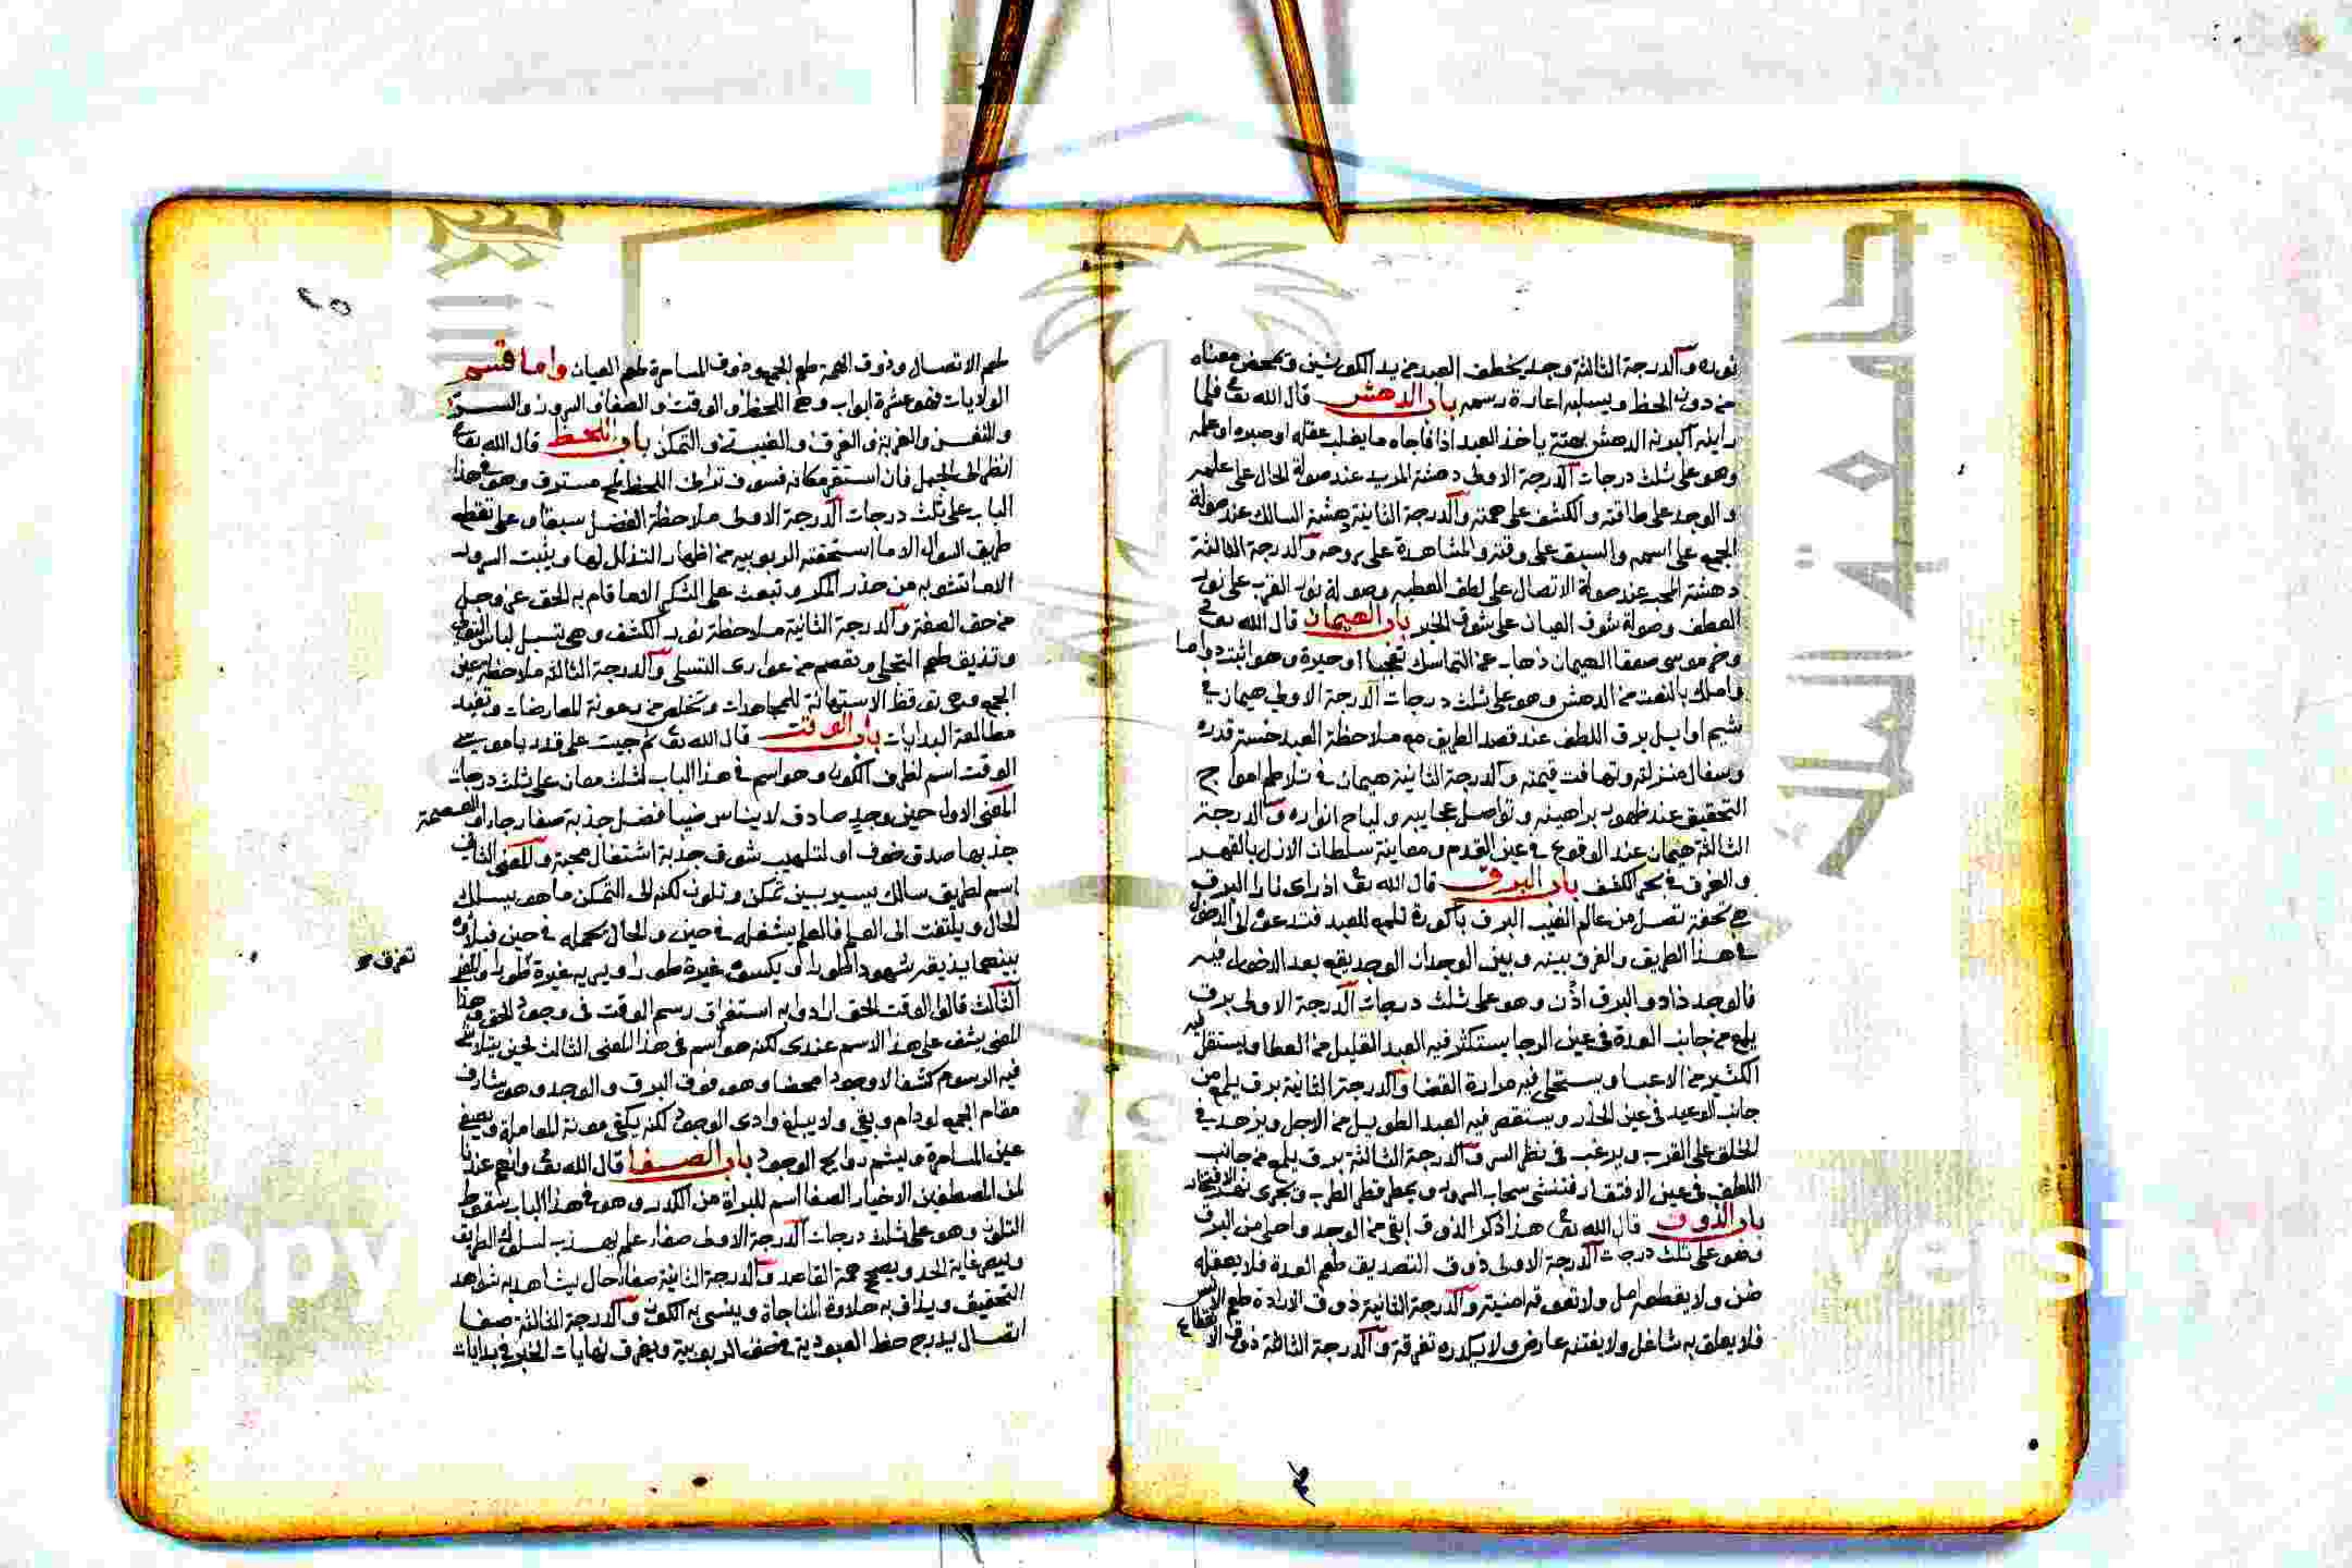 نوره والدرجة الثالثة وجد يخطف العبد من يد الكونين ويمحص معناه
من دون الحظ ويسلبه اعارة رسمه باب الدهش قال الله تع فلما
راينه اكبرنه الدهش بهتة ياخذ العبد اذا فاجاه ما يغلب عقله او صبره او علمه
وهو على ثلث درجات الدرجة الاولى دهشة المريد عند صولة الحال على علمه
والوجد على طاقته والكشف على همته والدرجة الثانية دهشة السالك عند صولة
الجمع على اسمه والسبق على وقته والمشاهدة على روحه والدرجة الثالثة
دهشة المحب عند صولة الاتصال على لطف العطيه وصولة نور القرب على نور
العطف وصولة شوق العيان على شوق الخبر باب الهيمان قال الله تع
وخر موسى صعقا الهيمان ذهاب عن التماسك تعجبا او حيرة وهو اثبت دواما
واملك بالنعت من الدهش وهو على ثلث درجات الدرجة الاولى هيمان في
شيم اوايل برق اللطف عند قصد الطريق مع ملاحظة العبد خسة قدره
وسفال منزلته وتهافت قيمته والدرجة الثانية هيمان في تلاطم امواج
التحقيق عند ظهور براهينه وتواصل عجايبه ولياح انواره والدرجة
الثالثة هيمان عند الوقوع في عين القدم ومعاينة سلطان الازل بالقهر
والغرق في بحر الكشف باب البرق قال الله تع اذ راى نارا البرق
في هذا الطريق والفرق بينه وبين الوجدان الوجد يقع بعد الدخول فيه
فالوجد زاد والبرق اذن وهو على ثلث درجات الدرجة الاولى برق
يلمع من جانب العدة في عين الرجا يستكثر فيه العبد القليل من العطا ويستقل
الكثير من الاعبا ويستحلي فيه مرارة القضا والدرجة الثانية برق يلمع من
جانب الوعيد في عين الحذر ويستقصر فيه العبد الطويل من الاجل ويزهد في
الخلق على القرب ويرغب في نظر السر والدرجة الثالثة برق يلمع من جانب
اللطف في عين الافتقار فينشي سحاب السرور ويمطر قطر الطرب ويجري نهر الافتخار
باب الذوق قال الله تع هذا ذكر الذوق ابقى من الوجد واجلى من البرق
وهو على ثلث درجات الدرجة الاولى ذوق التصديق طعم العدة فلا يعقله
ظن ولا يقطعه امل ولا تعوقه امنية والدرجة الثانية ذوق الارادة طعم الانس
فلا يعلق به شاغل ولا يفتنه عارض ولا يكدره تفرقة والدرجة الثالثة ذوق الانقطاع
٢٥
طعم الاتصال وذوق الهمة طعم الجمع وذوق المسامرة طعم العيان واما قسم
الولايات فهو عشرة ابواب وهي اللحظ والوقت والصفا والسرور والسر
والنفس والغربة والغرق والغيبة والتمكن باب اللحظ قال الله تع
انظر الى الجبل فان استقر مكانه فسوف تراني اللحظ لمح مسترق وهو في هذا
الباب على ثلث درجات الدرجة الاولى ملاحظة الفضل سبقا وهي تقطع
طريق السوال الا ما استحقته الربوبيه من اظهار التذلل لها وينبت السرور
الا ما تشوبه من حذر المكر وتبعث على الشكر الا ما قام به الحق عز وجل
من حق الصفة والدرجة الثانية ملاحظة نور الكشف وهي تسبل لباس التولي
وتذيق طعم التجلي وتعصم من عوار التسلي والدرجة الثالثة ملاحظة عين
الجمع وهي توقظ الاستهانة للمجاهدات وتخلص من رعونة المعارضات وتفيد
مطالعة البدايات باب الوقت قال الله تع ثم جيت على قدر يا موسى
الوقت اسم لظرف الكون وهو اسم في هذا الباب لثلث معان على ثلث درجات
المعنى الاول حين وجد صادق لايناس ضيا فضل جذبه صفا رجا او لعصمة
جذبها صدق خوف او لتلهب شوق جذبه اشتعال محبة والمعنى الثاني
اسم لطريق سالك يسير بين تمكن وتلون لكنه الى التمكن ما هو يسلك
الحال ويلتفت الى العلم فالعلم يشغله في حين والحال يحمله في حين فبلاوه
تفرق
الثالث قالوا الوقت الحق ارادوا به استغراق رسم الوقت في وجود الحق وهذا
المعنى يشق على هذا الاسم عندي لكنه هو اسم في هذا المعنى الثالث لحين يتلاشى
فيه الرسوم كشفا لا وجودا محضا وهو فوق البرق والوجد وهو يشارف
مقام الجمع لو دام وبقي ولا يبلغ وادي الوجود لكنه يكفي مونة المعاملة ويصفي
عين المسامرة ويشم روايح الوجود باب الصفا قال الله تع وانهم عندنا
لمن المصطفين الاخيار الصفا اسم للبراة من الكدر وهو في هذا الباب سقوط
التلون وهو على ثلث درجات الدرجة الاولى صفا علم يهذب لسلوك الطريق
ويبصر غاية الجد ويصح همة القاصد والدرجة الثانية صفا حال يشاهد به شواهد
التحقيق ويذاق به حلاوة المناجاة وينسى به الكون والدرجة الثالثة صفا
اتصال يدرج حظ العبودية في حق الربوبية ويغرق نهايات الخبر في بدايات